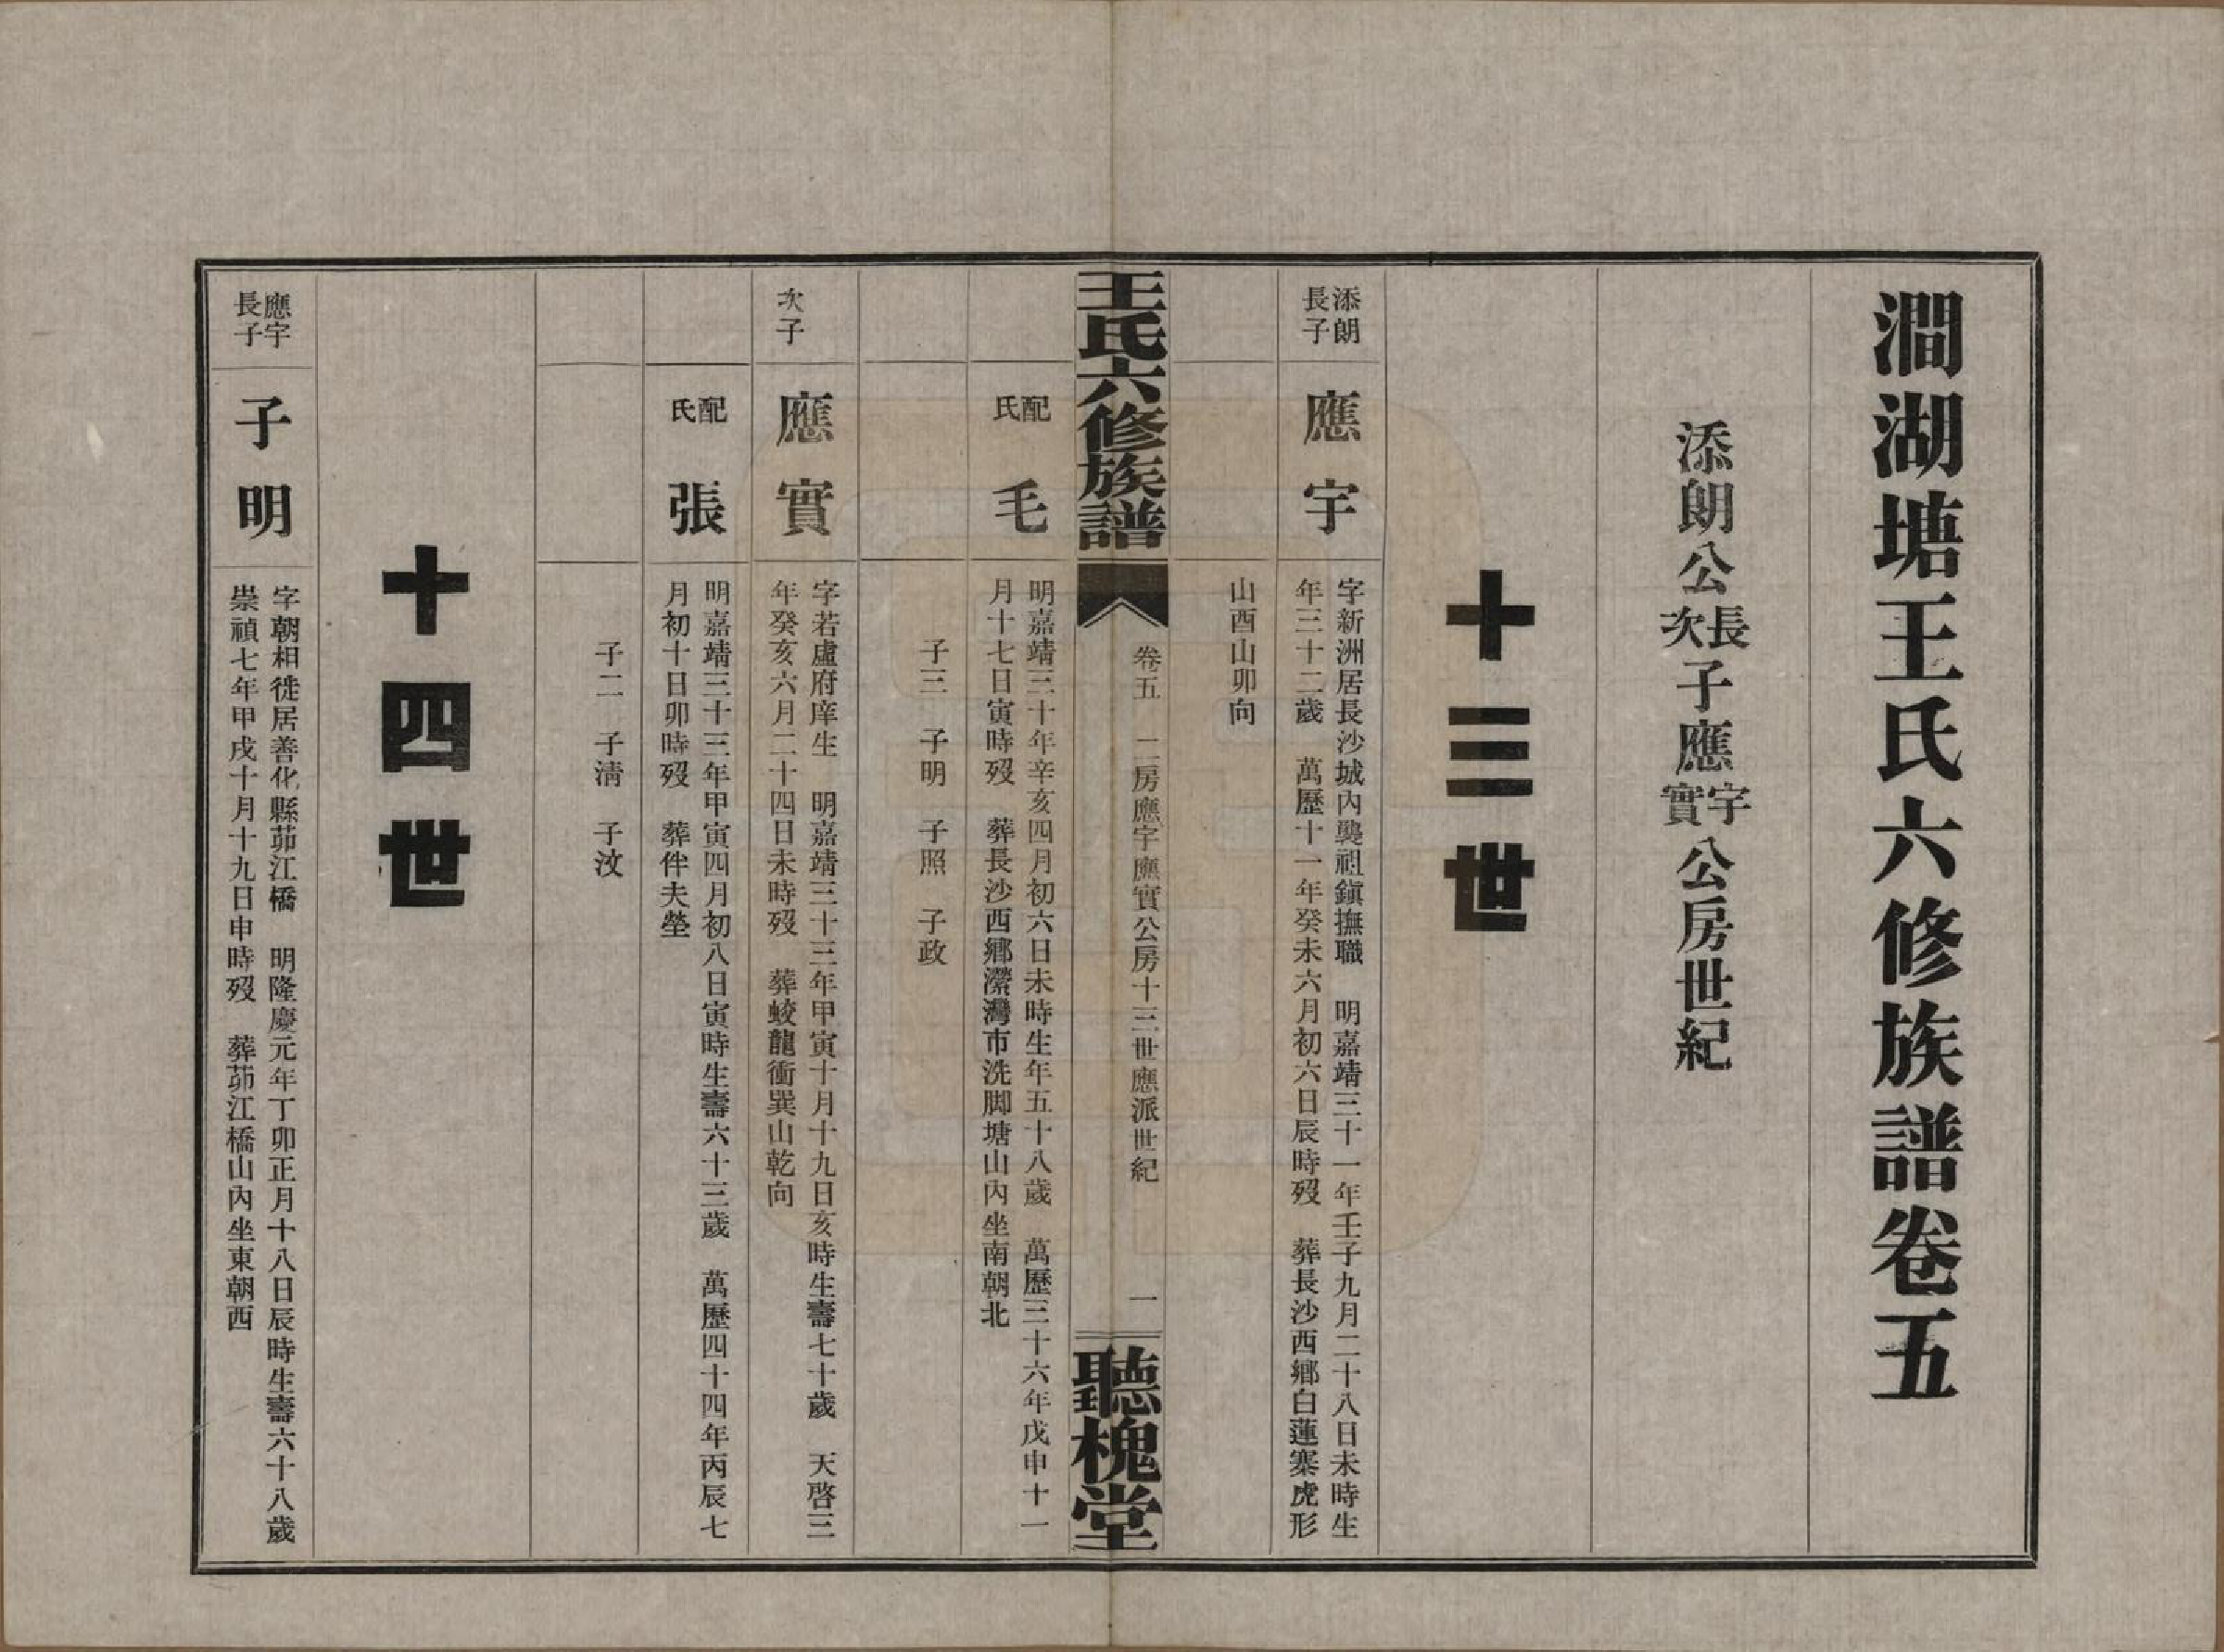 澗湖塘王氏六修族譜卷五
添朗公長次子應宇實公房世紀
十三世
添朗長子
應宇
字新洲居長沙城內襲祖鎭撫職　明嘉靖三十一年壬子九月二十八日未時生
年三十二歲　萬歷十一年癸未六月初六日辰時歿　葬長沙西鄉白蓮寨虎形
山酉山卯向
王氏六修族譜
卷五　二房應宇應實公房十三世應派世紀
一
聽槐堂
配氏
毛
明嘉靖三十年辛亥四月初六日未時生年五十八歲　萬歷三十六年戊申十一
月十七日寅時歿　葬長沙西鄉濚灣市洗脚塘山內坐南朝北
子三　子明　子照　子政
次子
應實
字若虛府庠生　明嘉靖三十三年甲寅十月十九日亥時生壽七十歲　天啓三
年癸亥六月二十四日未時歿　葬蛟龍衝巽山乾向
配氏
張
明嘉靖三十三年甲寅四月初八日寅時生壽六十三歲　萬歷四十四年丙辰七
月初十日卯時歿　葬伴夫塋
子二　子淸　子汶
十四世
應宇長子
子明
字朝相徙居善化縣茆江橋　明隆慶元年丁卯正月十八日辰時生壽六十八歲
崇禎七年甲戌十月十九日申時歿　葬茆江橋山內坐東朝西